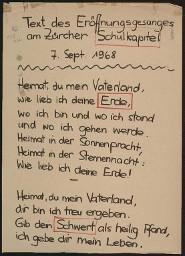 Text des Eröffnungsgesanges
am Zürcher Schulkapitel
7. Sept. 1968
Heimat, du mein Vaterland,
wie lieb ich deine Erde,
wo ich bin und wo ich stand
und wo ich gehen werde.
Heimat in der Sonnenpracht,
Heimat in der Sternennacht:
Wie lieb ich deine Erde!
Heimat, du mein Vaterland,
dir bin ich treu ergeben.
Gib dem Schwert als heilig Pfand,
ich gebe dir mein Leben.